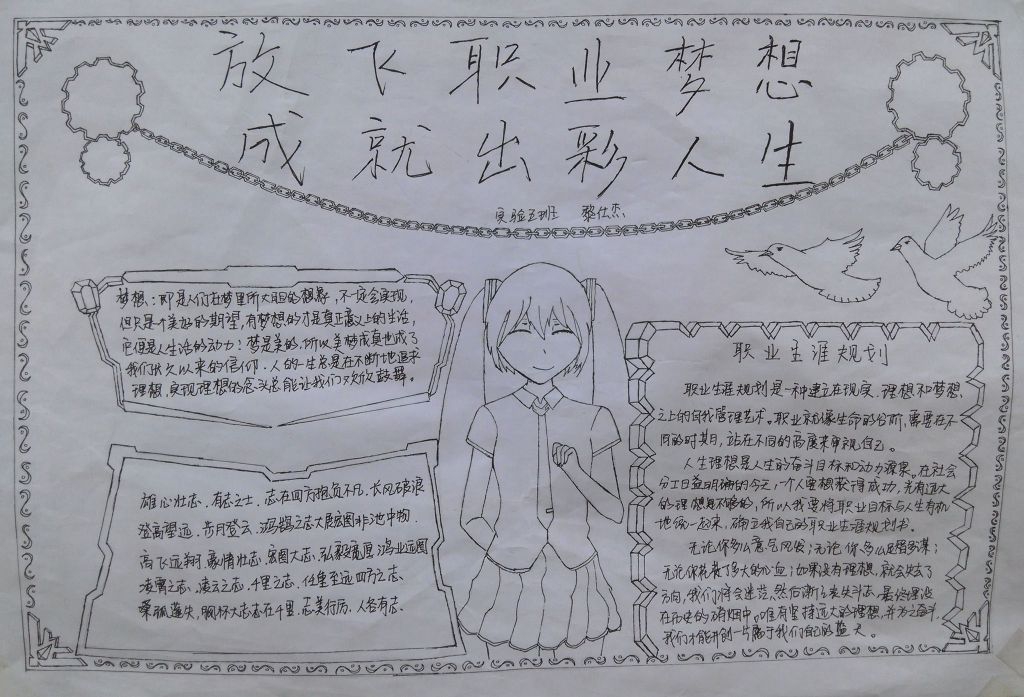 放飞职业梦想
成就出彩人生
实验五班 黎仕杰
梦想：即是人们在梦里所大胆的想象，不一定会实现，
但只是个美好的期望，有梦想的才是真正意义上的生活，
它便是人生活的动力！梦是美的，所以美梦成真也成了
我们长久以来的信仰．人的一生总是在不断地追求
理想，实现理想的念头总能让我们欢欣鼓舞。
雄心壮志．有志之士．志在四方抱负不凡．长风破浪
登高望远．步月登云．鸿鹄之志大展宏图非池中物．
高飞远翔．豪情壮志．宏图大志．弘毅宽厚．鸿业远图
凌霄之志．凌云之志．千里之志．任重至远四方之志．
桑弧蓬矢．胸怀大志志在千里．志美行厉．人各有志．
职业生涯规划
职业生涯规划是一种建立在现实．理想和梦想．
之上的自我管理艺术。职业就像生命的台阶，需要在不
同的时期，站在不同的高度来审视自己。
人生理想是人生的奋斗目标和动力源泉。在社会
分工日益明确的今天，一个人要想获得成功，光有远大
的理想是不够的，所以我要将职业目标与人生有机
地统一起来，确立我自己的职业生涯规划书。
无论你多么意气风发；无论你多么足智多谋；
无论你花费了多大的心血；如果没有理想，就会失去了
方向，我们将会迷茫，然后渐渐丧失斗志．最终埋没
在历史的硝烟中。唯有坚持远大的理想，并为之奋斗，
我们才能开创一片属于我们自己的蓝天。